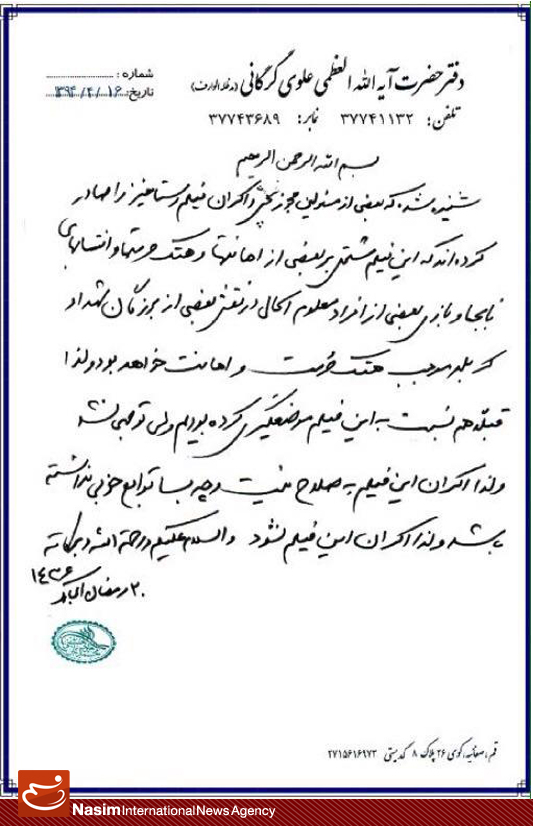 دفتر حضرت آیه الله العظمی علوی گرگانی (مدظله الوارف)
شماره :
تاریخ: ۱۳۹۴/۴/۱۶
تلفن: ۳۷۷۴۱۱۳۲ نمابر: ۳۷۷۴۳۶۸۹
بسم الله الرحمن الرحیم
شنیده شده که بعضی از مسئولین مجوز پخش و اکران فیلم رستاخیز را صادر
کرده اند که این فیلم مشتمل بر بعضی از اهانتها و هتک حرمتها و انتسابهای
نابجا و بازی بعضی از افراد معلوم الحال در نقش بعضی از بزرگان شهداء
کربلا موجب هتک حرمت و اهانت خواهد بود و لذا
قبلا هم نسبت به این فیلم موضعگیری کرده بودیم ولی توجهی نشد
ولذا اکران این فیلم به صلاح نیست و چه بسا توابع خوبی نداشته
باشد و لذا اکران این فیلم نشود والسلام علیکم و رحمة الله و برکاته
۲۰ رمضان المبارک ۱۴۳۶
قم ، صفائیه، کوی ۲۶ پلاک ۸ کد پستی ۳۷۱۵۶۱۶۹۷۳
Nasim International News Agency